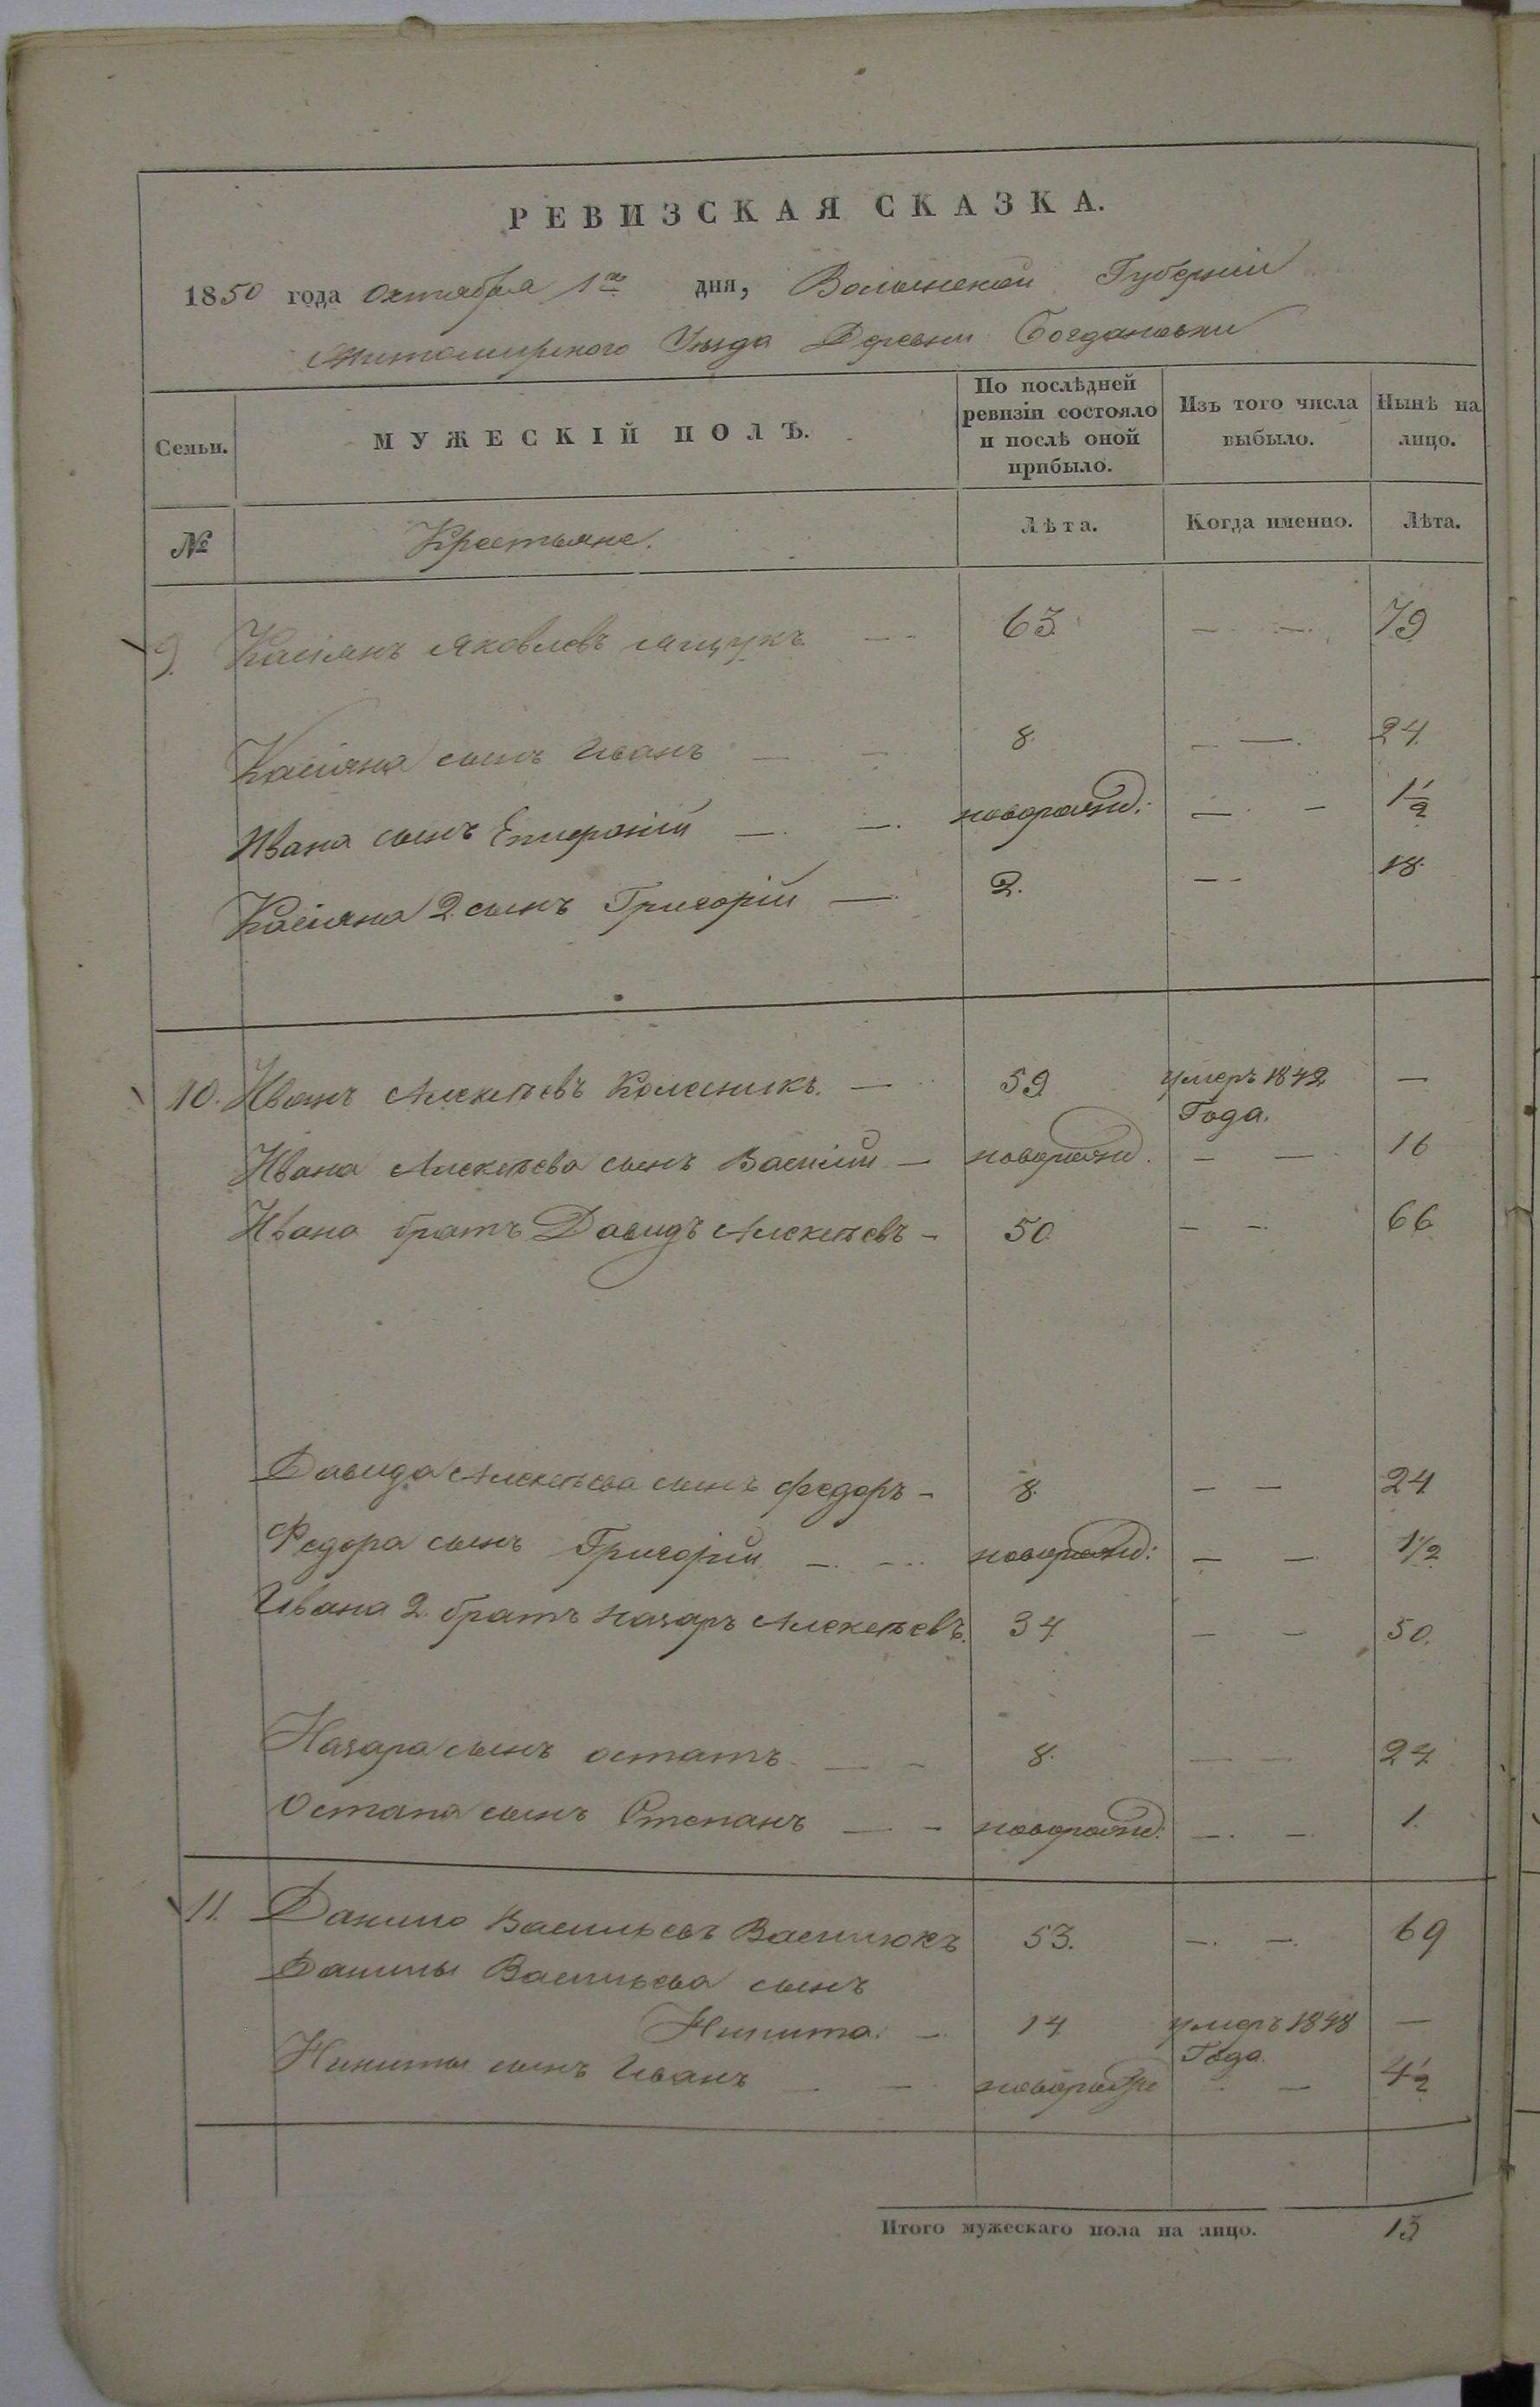 РЕВИЗСКАЯ СКАЗКА.
1850 года Октября 1го дня, Волынской Губерніи
Житомирского Уезда Деревни Богдановки
Семьи. МУЖЕСКІЙ ПОЛЪ. По послѣдней ревизіи состояло и послѣ оной прибыло. Изъ того числа выбыло. Нынѣ на лицо.
№ Крестьяне. Лѣта. Когда именно. Лѣта.
9. Касіянъ Яковлевъ Ящукъ — 63 — — 79
Касіяна сынъ Иванъ — — 8. — — 24
Ивана сынъ — — новорожд: — — 1 1/2
Касіяна 2. сынъ Григорій — 2. — — 18
10. Иванъ Алексѣевъ Колесникъ. — 59 умеръ 1842 —
Года.
Ивана Алексѣева сынъ Василій — новорожд. — — 16
Ивана братъ Давидъ Алексѣевъ — 50 — — 66
Давида Алексѣева сынъ Федоръ — 8. — — 24
Федора сынъ Григорій — — новорожд: — — 1 1/2
Ивана 2. братъ Назаръ Алексѣевъ. 34 — — 50.
Назара сынъ Остапъ — — 8. — — 24
Остапа сынъ Степанъ — — новорожд: — — 1.
11. Данило Васильевъ Василюкъ 53. — — 69
Данилы Васильева сынъ
Никита. — 14 умеръ 1848 —
Года.
Никиты сынъ Иванъ — — новорожд — — 4 1/2
Итого мужескаго пола на лицо. 13